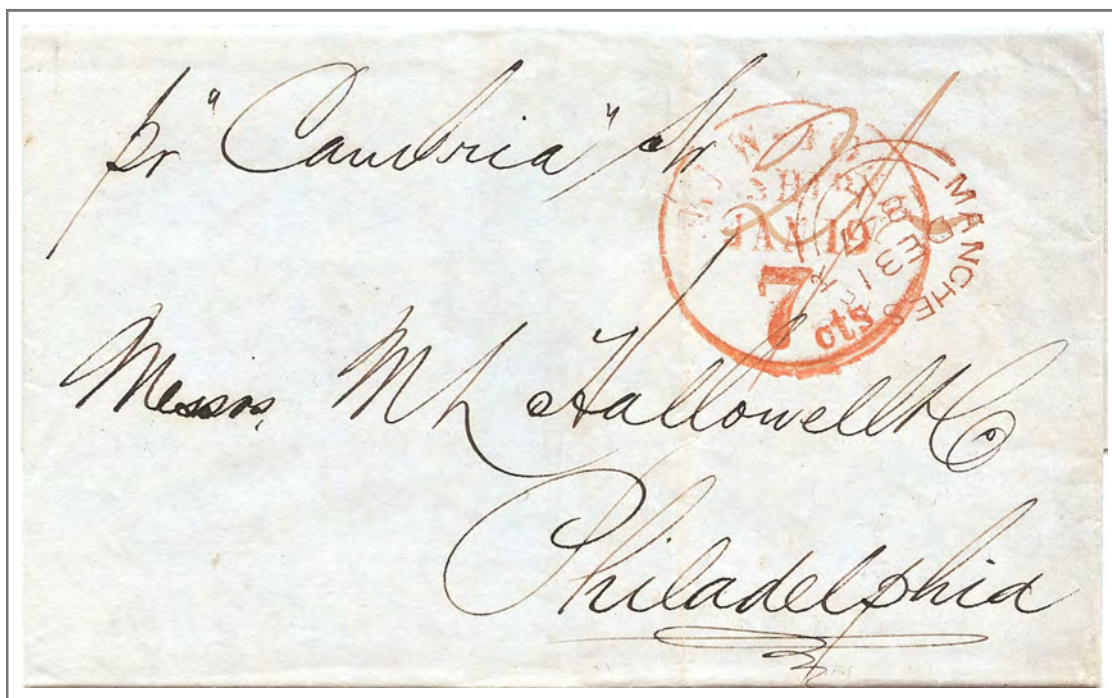 pr "Cambria" Str
NEW-YORK
SHIP
JAN 19
7 cts
MANCHES
Messrs. M L Hallowell & Co
Philadelphia